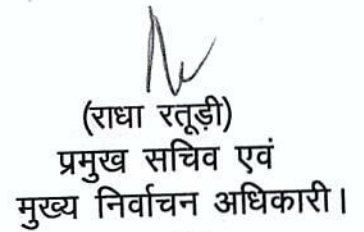 (राधा रतूड़ी)
प्रमुख सचिव एवं
मुख्य निर्वाचन अधिकारी।